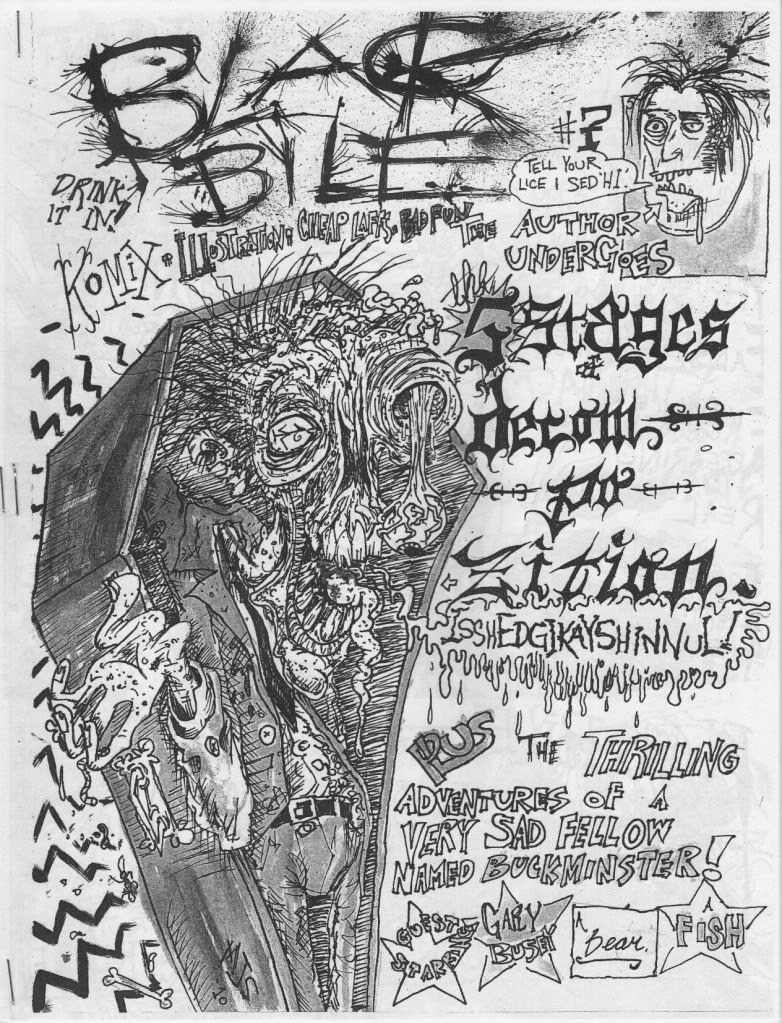 BLACK
BYLE
#7
TELL YOUR
LICE I SED 'HI'.
DRINK
IT IN!
KOMIX * ILLUSTRATION * CHEAP LAFFS * BAD FUN
THE AUTHOR
UNDERGOES
the
5 stages
of
decom
po
zition.
ISSHEDGIKAYSHINNUL!
PLUS THE THRILLING
ADVENTURES OF A
VERY SAD FELLOW
NAMED BUCKMINSTER!
GUEST
STARRING
GARY
BUSEY
A
Bear.
A
FISH